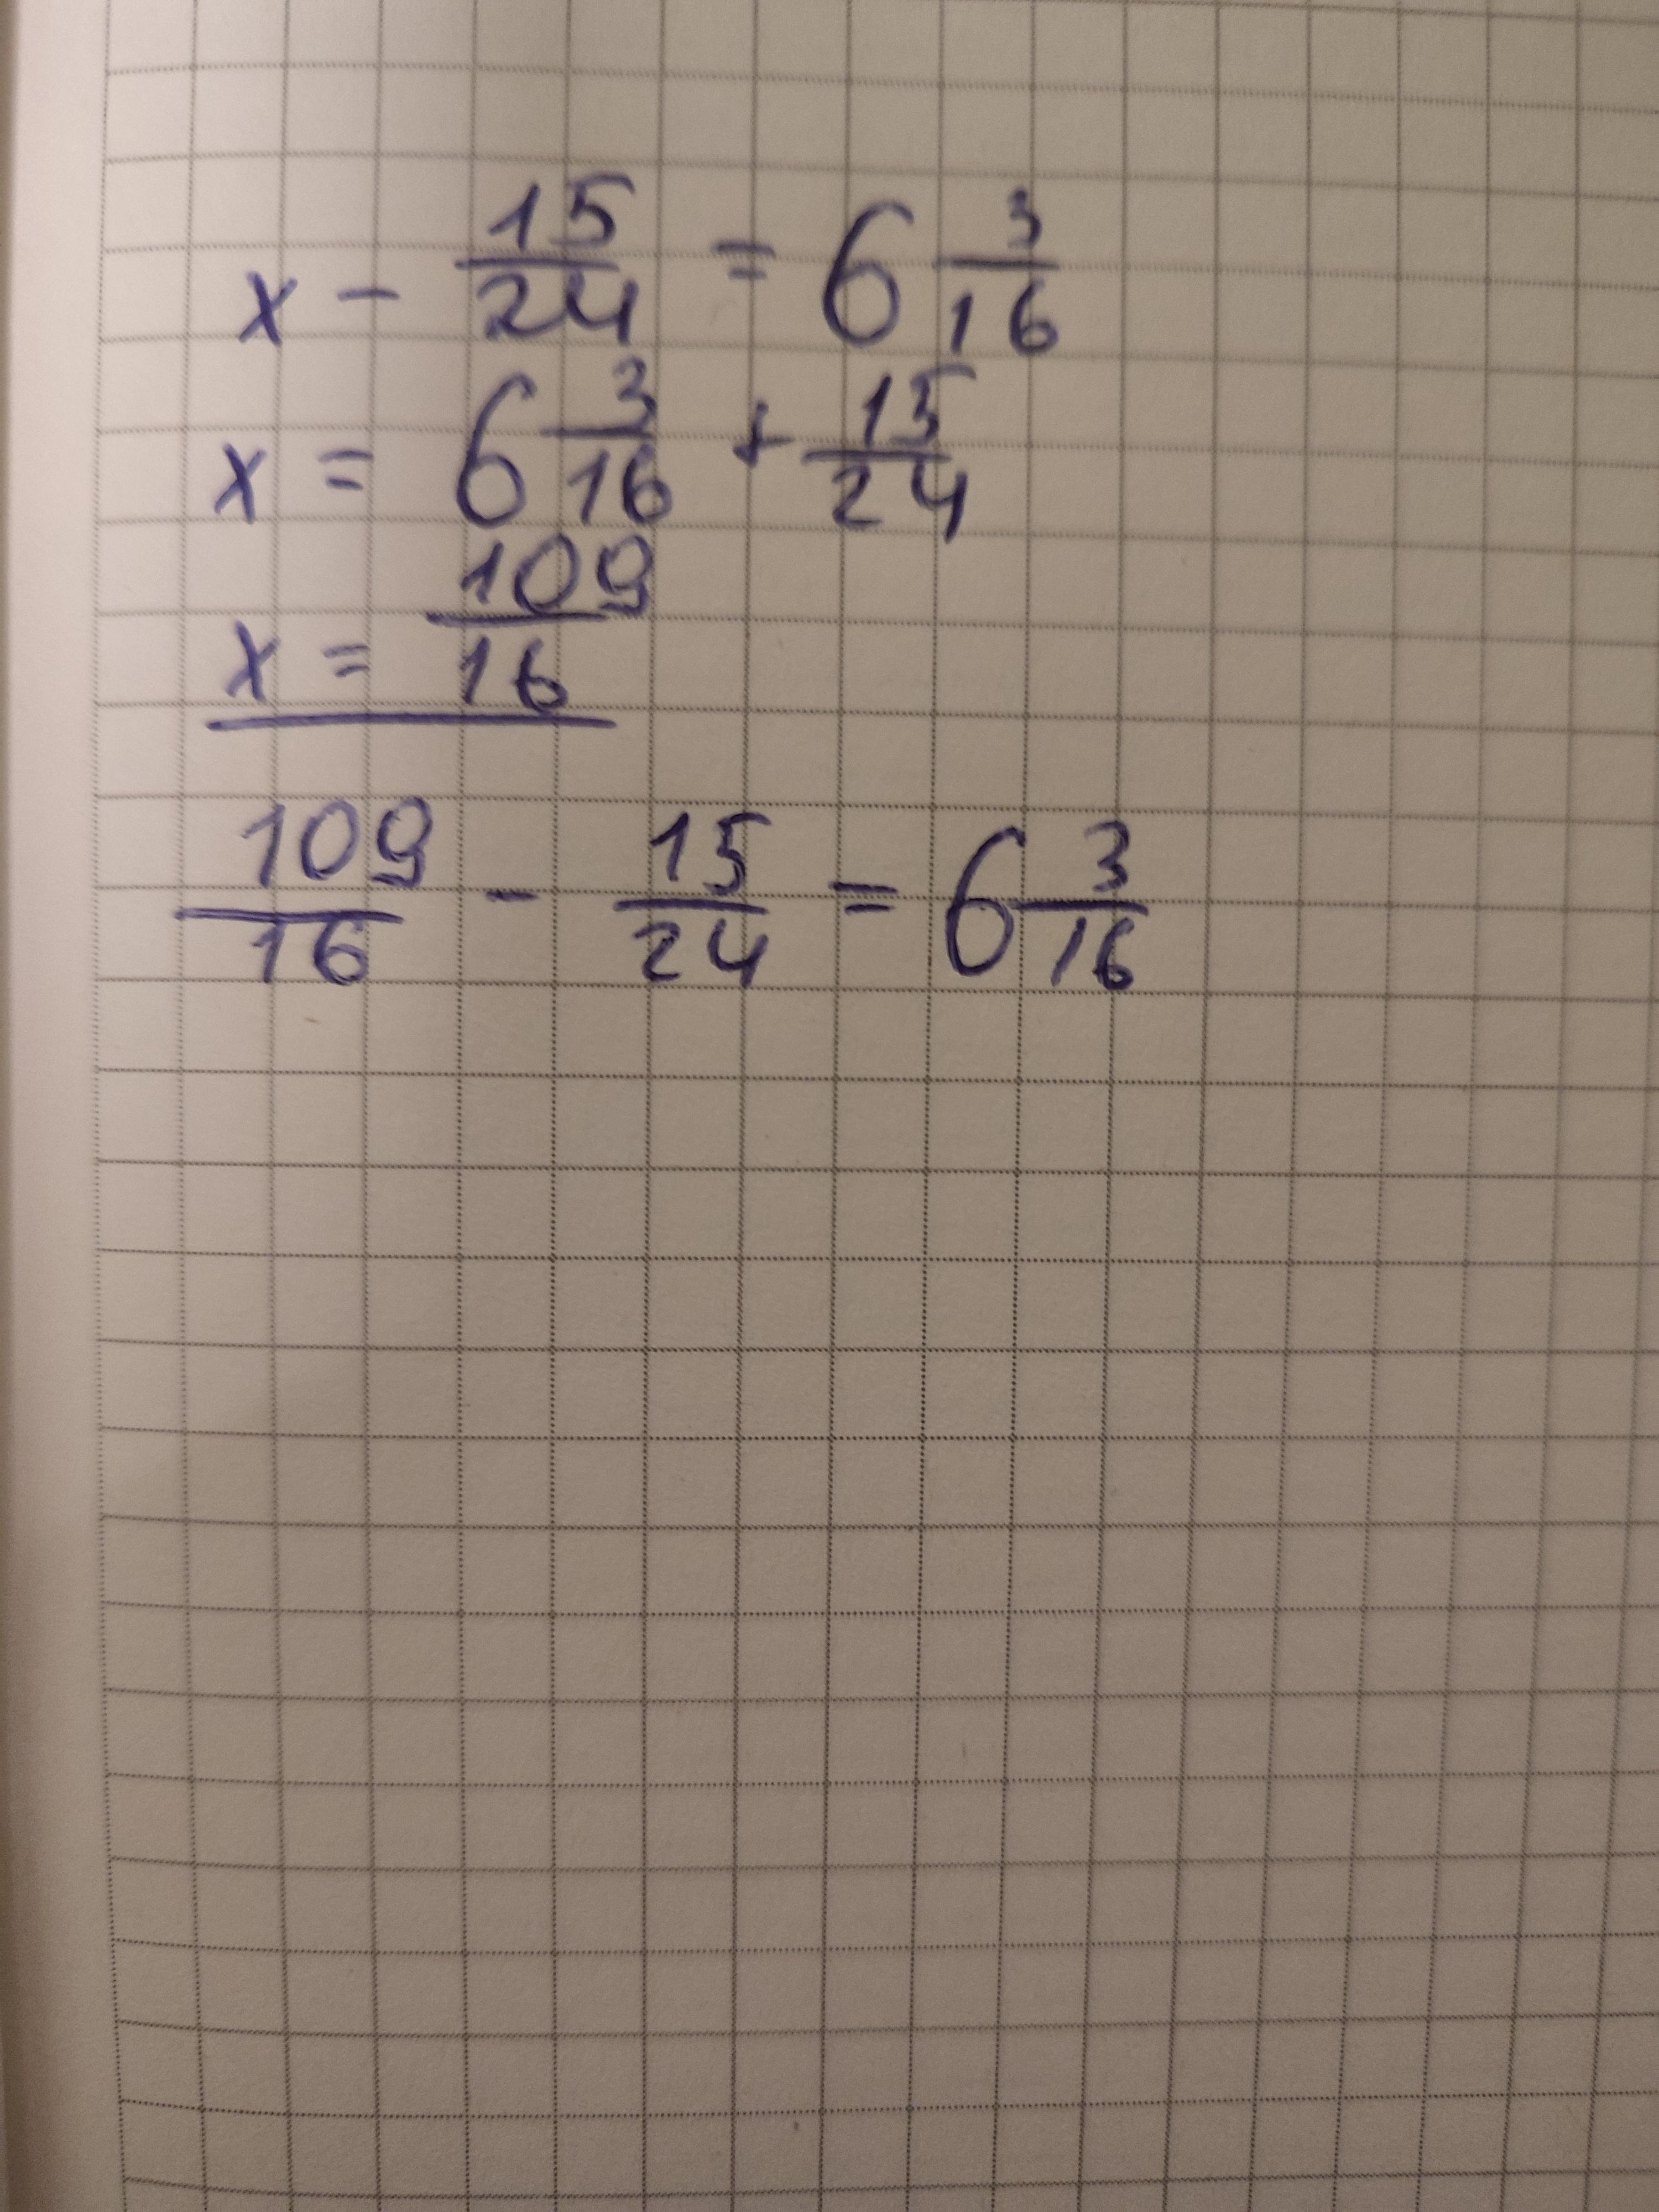 x - 15/24 = 6 3/16
x = 6 3/16 + 15/24
x = 109/16
109/16 - 15/24 = 6 3/16